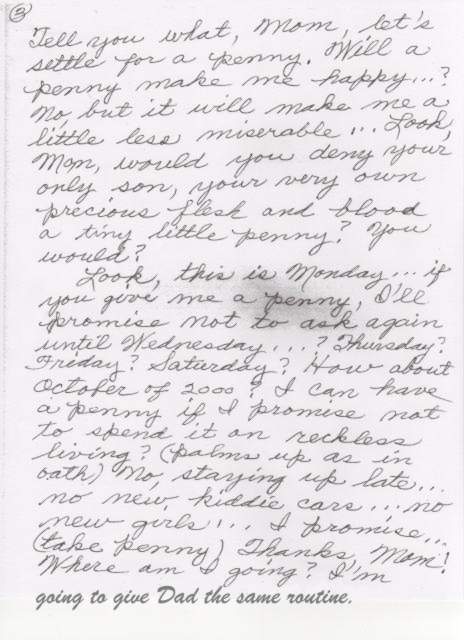 3
Tell you what, Mom, let's
settle for a penny. Will a
penny make me happy...?
No, but it will make me a
little less miserable... Look,
Mom, would you deny your
only son, your very own
precious flesh and blood
a tiny little penny? You
would?
Look, this is Monday... if
you give me a penny, I'll
promise not to ask again
until Wednesday...? Thursday?
Friday? Saturday? How about
October of 2000? I can have
a penny if I promise not
to spend it on reckless
living? (palms up as in
oath) No, staying up late...
no new kiddie cars... no
new girls... I promise...
(take penny) Thanks, Mom!
Where am I going? I'm
going to give Dad the same routine.